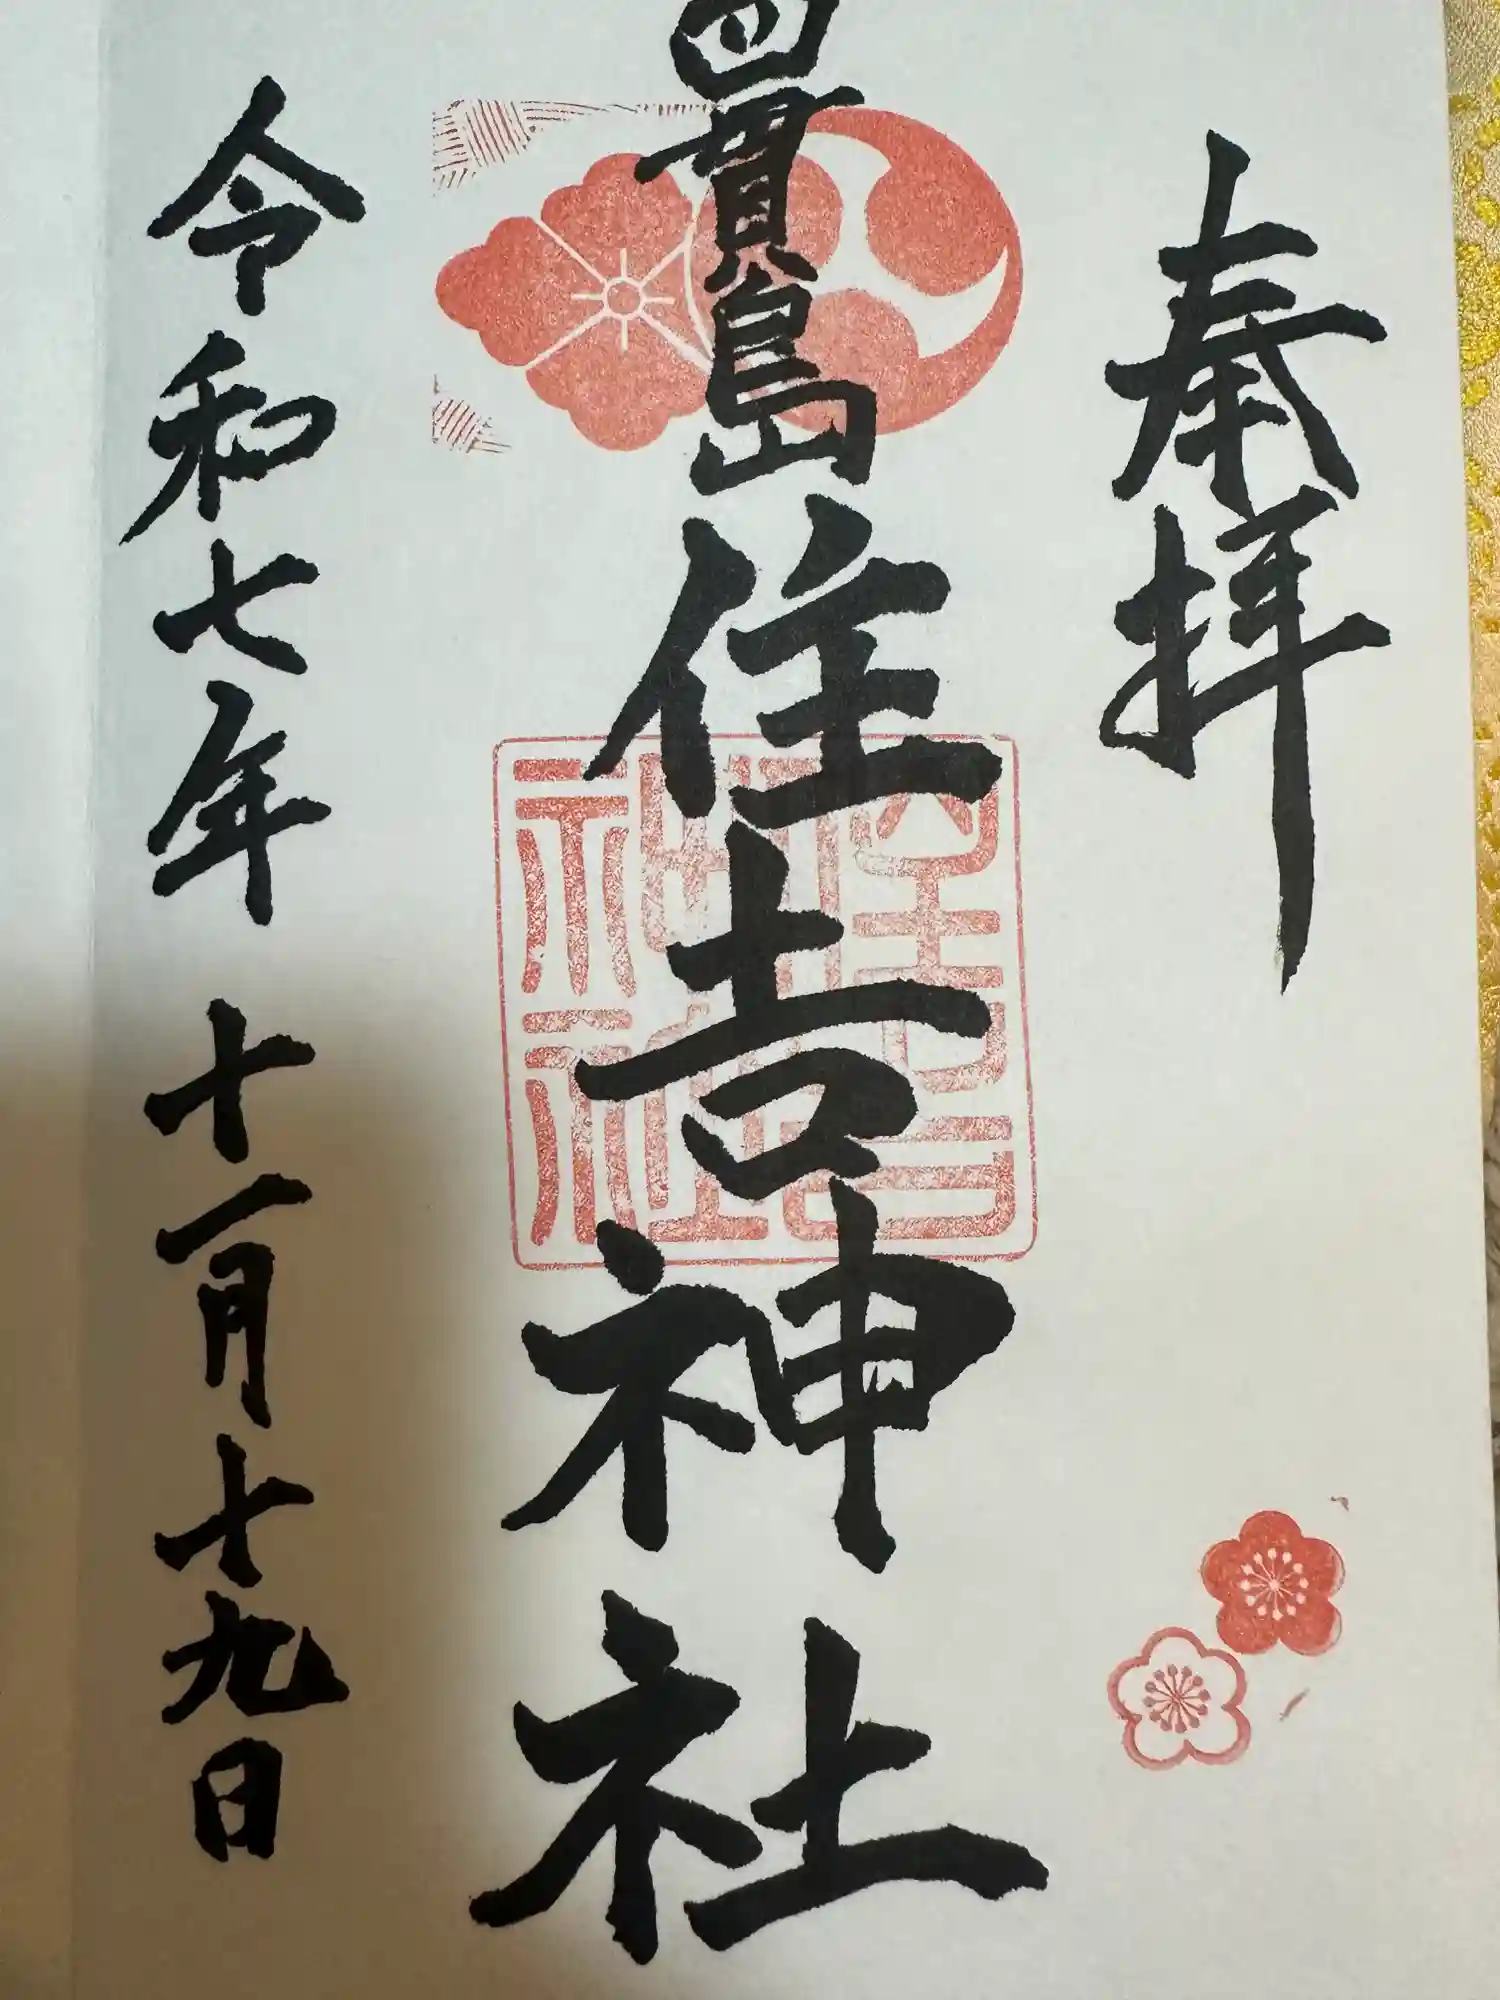 奉拝
四貫島住吉神社
住吉神社
令和七年十一月十九日